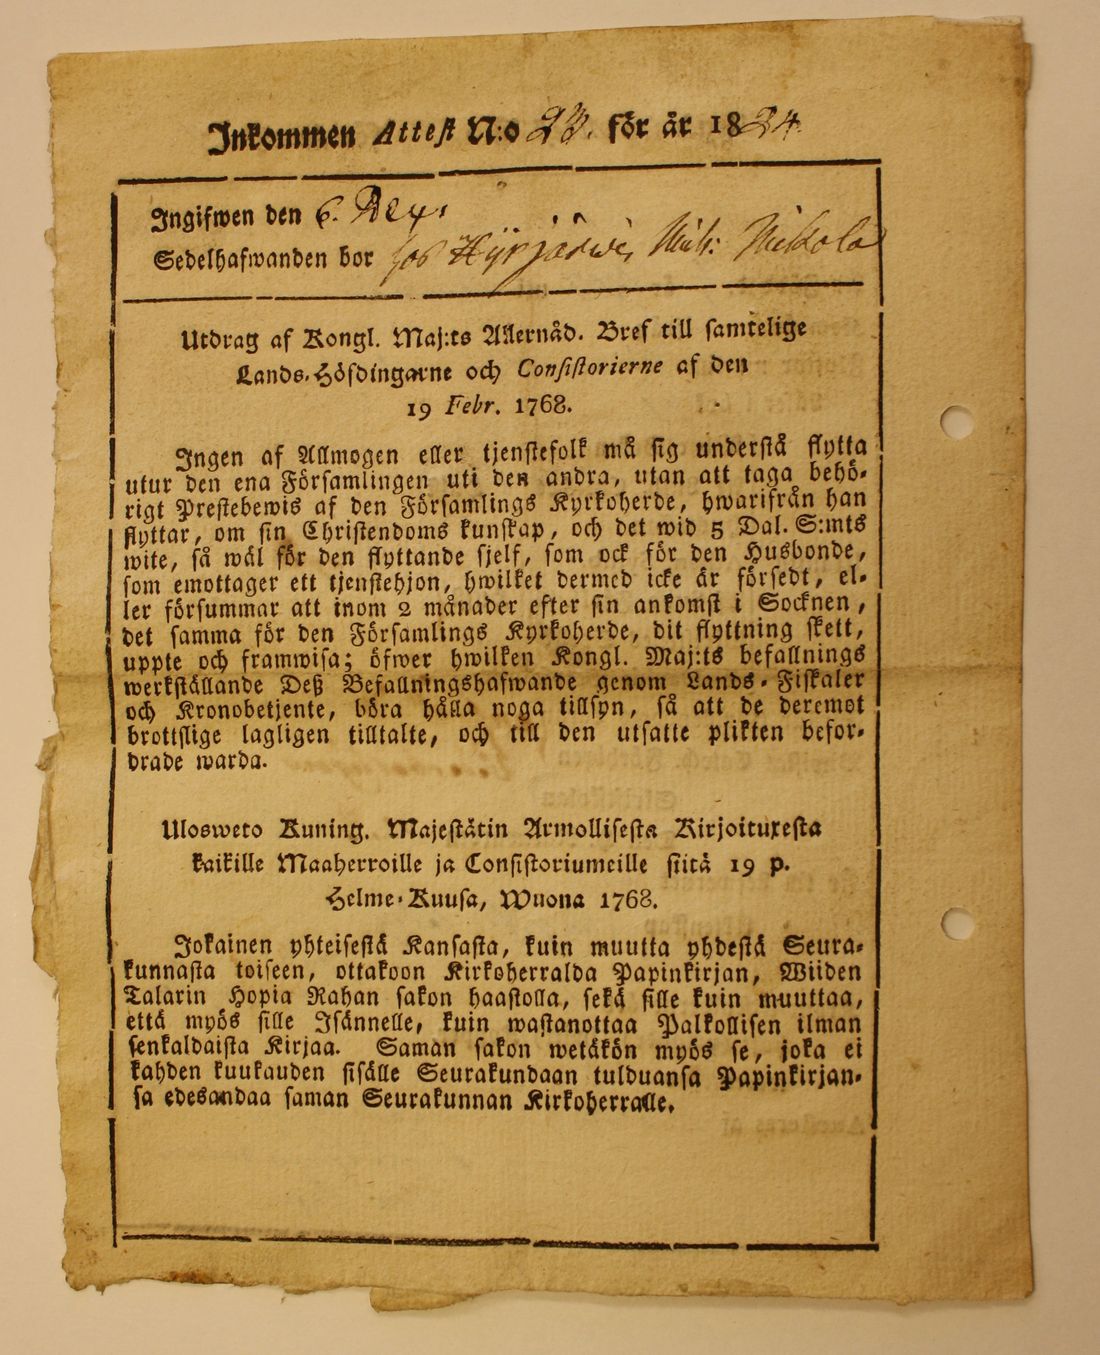 Inkommen Attest N:o 23. för år 1824.
Ingifwen den 6.
Sedelhafwanden bor hos Hyrjärwi, Nikola
Utdrag af Kongl. Maj:ts Allernåd. Bref till samtelige
Lands-Höfdingarne och Consistorierne af den
19 Febr. 1768.
Ingen af Allmogen eller tjenstefolk må sig understå flytta
utur den ena Församlingen uti den andra, utan att taga behö-
rigt Prestebewis af den Församlings Kyrkoherde, hwarifrån han
flyttar, om sin Christendoms kunskap, och det wid 5 Dal. S:mts
wite, så wäl för den flyttande sjelf, som ock för den Husbonde,
som emottager ett tjenstehjon, hwilket dermed icke är försedt, el-
ler försummar att inom 2 månader efter sin ankomst i Socknen,
det samma för den Församlings Kyrkoherde, dit flyttning skett,
uppte och framwisa; öfwer hwilken Kongl. Maj:ts befallnings
werkställande Deß Befallningshafwande genom Lands-Fiskaler
och Kronobetjente, böra hålla noga tillsyn, så att de deremot
brottslige lagligen tilltalte, och till den utsatte plikten befor-
drade warda.
Ulosweto Kuning. Majestätin Armollisesta Kirjoituxesta
kaikille Maaherroille ja Consistoriumeille siitä 19 p.
Helme-Kuusa, Wuona 1768.
Jokainen yhteisestä Kansasta, kuin muutta yhdestä Seura-
kunnasta toiseen, ottakoon Kirkoherralda Papinkirjan, Wiiden
Talarin Hopia Rahan sakon haastolla, sekä sille kuin muuttaa,
että myös sille Isännelle, kuin wastanottaa Palkollisen ilman
senkaldaista Kirjaa. Saman sakon wetäkön myös se, joka ei
kahden kuukauden sisälle Seurakundaan tulduansa Papinkirjan-
sa edesandaa saman Seurakunnan Kirkoherralle.